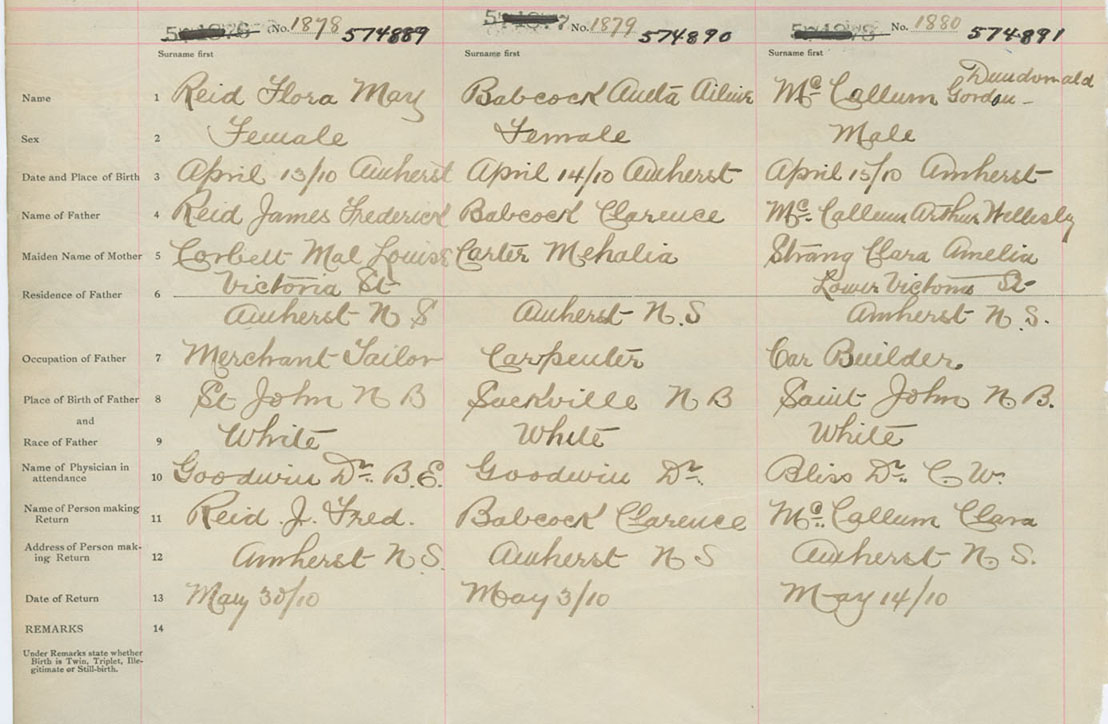 No. 1878 574889 No. 1879 574890 No. 1880 574891
Surname first Surname first Surname first
Dundonald
Name 1 Reid Flora May Babcock Aileen Mc Callum Gordon
Sex 2 Female Female Male
Date and Place of Birth 3 April 13/10 Amherst April 14/10 Amherst April 15/10 Amherst
Name of Father 4 Reid James Frederick Babcock Clarence Mc Callum Arthur Wellesly
Maiden Name of Mother 5 Corbett Louise Carter Mehalia Strang Clara Amelia
Victoria St Lower Victoria St
Residence of Father 6
Amherst N S Amherst N.S Amherst N S.
Occupation of Father 7 Merchant Tailor Carpenter Car Builder.
Place of Birth of Father 8 St John N B Sackville N B Saint John N B.
and
Race of Father 9 White White White
Name of Physician in
attendance 10 Goodwin Dr. B.E. Goodwin Dr. Bliss Dr. C. W.
Name of Person making
Return 11 Reid J. Fred. Babcock Clarence Mc Callum Clara
Address of Person mak-
ing Return 12 Amherst N S. Amherst N S Amherst N S.
Date of Return 13 May 30/10 May 3/10 May 14/10
REMARKS 14
Under Remarks state whether
Birth is Twin, Triplet, Ille-
gitimate or Still-birth.